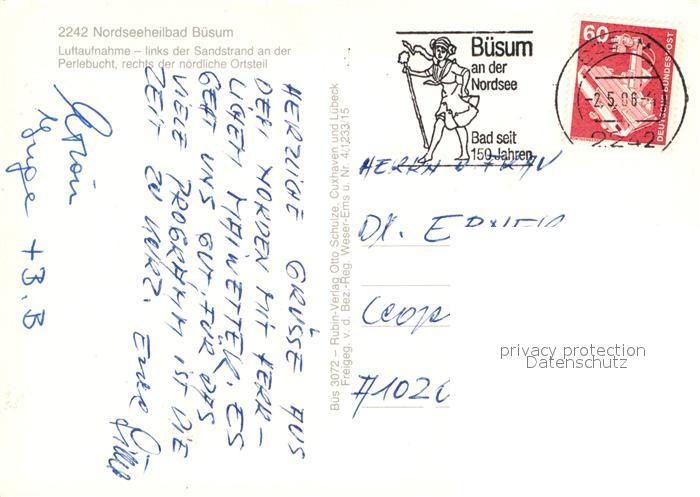 2242 Nordseeheilbad Büsum
Luftaufnahme – links der Sandstrand an der
Perlebucht, rechts der nördliche Ortsteil
HERZLICHE GRÜSSE AUS
DEM NORDEN MIT HERR-
LICHEM MAIWETTER. ES
GEHT UNS GUT. FÜR DAS
VIELE PROGRAMM IST DIE
ZEIT ZU KURZ.
+ B.B
Büs 3072 – Rubin-Verlag Otto Schulze, Cuxhaven und Lübeck
Freigeg. v. d. Bez.-Reg. Weser-Ems u. Nr. 4/1233/15
Büsum
an der
Nordsee
Bad seit
150 Jahren
60
DEUTSCHE BUNDESPOST
2242
HERRN U FRAU
DR.
A1020
privacy protection
Datenschutz